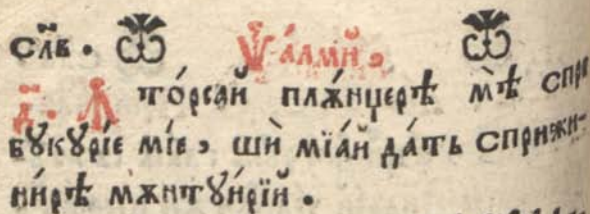 сл҃в. Ѿ Ѱалми́, Ѿ
д҃. Ѧ то́рсай плѫ́нџерѣ мѣ̀ спре
бꙋкꙋрі́е мі́е, шѝ мїа́й да́ть сприжи-
ни́рѣ мѫнтꙋи́рїй.